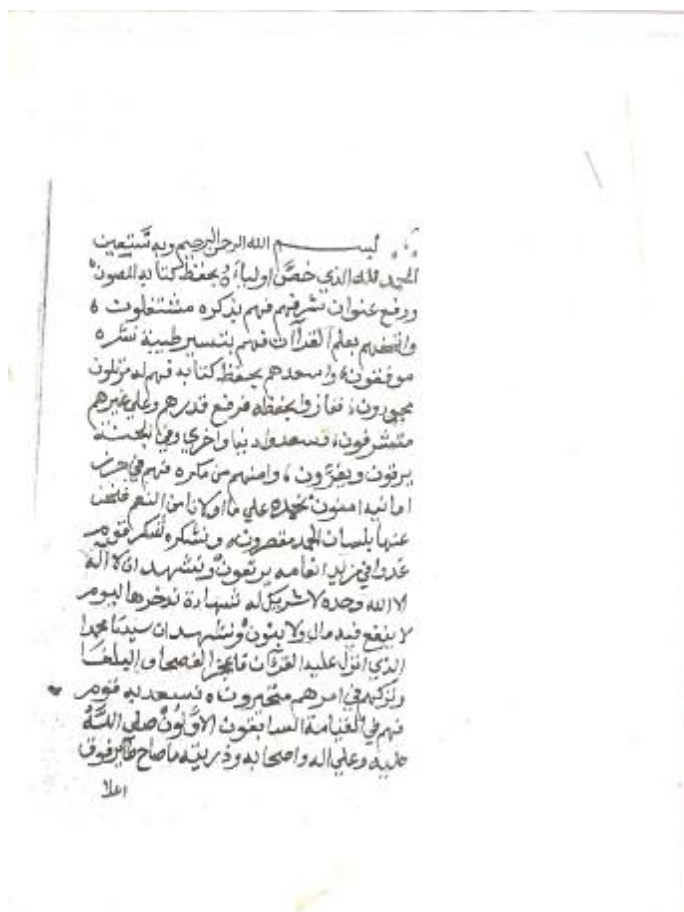 بسم الله الرحمن الرحيم وبه نستعين
الحمد لله الذي خصَّ اولياءه بحفظ كتابه المصون
ورفع عنوان شرفهم فهم بذكره مشتغلون
واتحفهم بعلم القراآت فهم بتيسير طيبة نشره
موفقون واسعدهم بحفظ كتابه فهم له مرتلون
مجودون، ففازوا بحفظه فرفع قدرهم وعلي غيرهم
متشرفون، فسعدوا دنيا واخري وفي الجنة
يرقون ويقرون، وامنهم من مكره فهم في حرز
امانيه امنون نحمده علي ما اولانا من النعم فنحن
عنها بلسان الحمد مقصرون، ونشكره شكر قوم
غدوا في انعامه يرتعون ونشهد ان لا اله
الا الله وحده لا شريك له شهادة ندخرها ليوم
لا ينفع فيه مال ولا بنون ونشهد ان سيدنا محمدا
الذي انزل عليه القرآن فاعجز الفصحا والبلغا
وتركهم في امرهم متحيرون فسعد به قوم
فهم في القيامة السابقون الاوَّلون صلي اللّه
عليه وعلي اله واصحابه وذريته ما صاح طاير فوق
اعلا